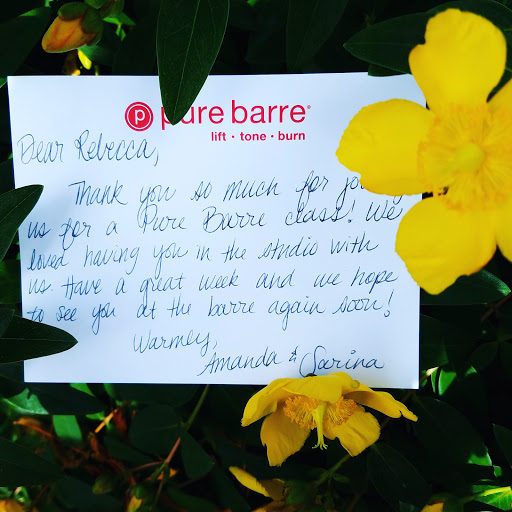 p pure barre®
lift • tone • burn
Dear Rebecca,
Thank you so much for joining
us for a Pure Barre class! We
loved having you in the studio with
us. Have a great week and we hope
to see you at the barre again soon!
Warmly,
Amanda & Sarina